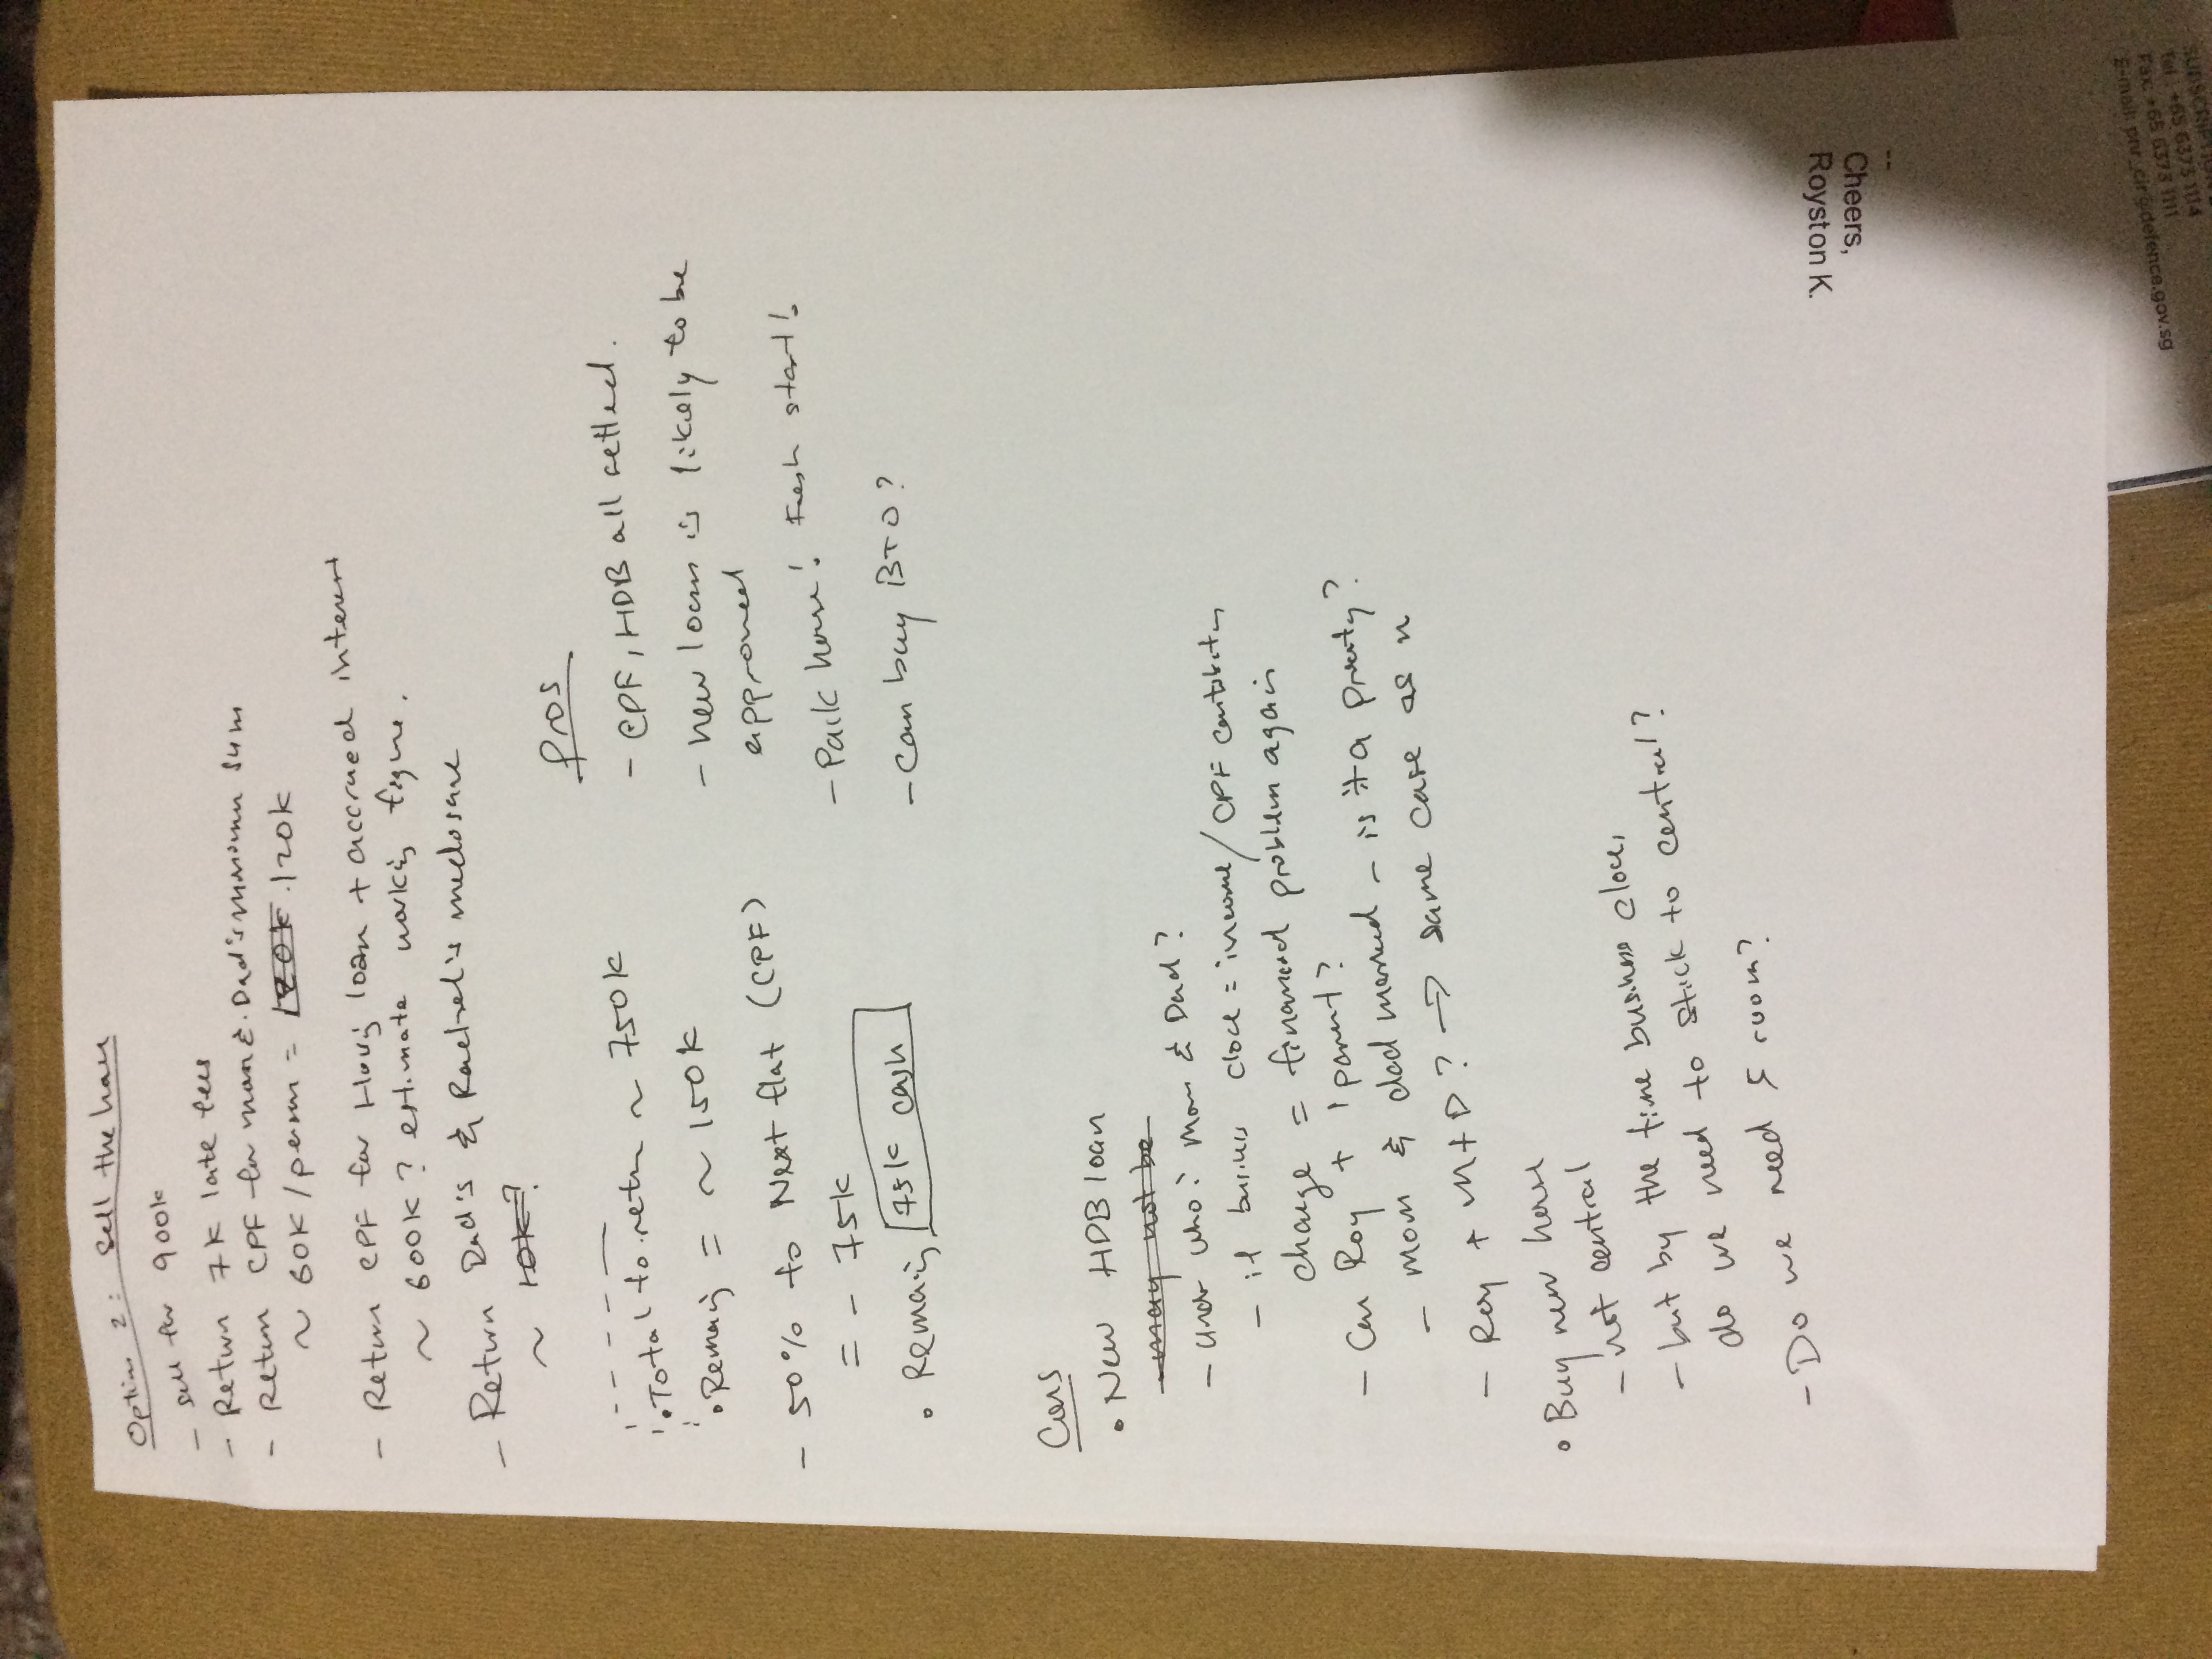 Option 2: Sell the house
- sell for 900k
- Return 7k late fees
- Return CPF for mom & Dad's minimum sum
~ 60k/person = 120k
- Return CPF for Housing loan + accrued interest
~ 600k? estimate working figure.
- Return Dad's & Rachel's medisave
~ 10k?
• Total to return ~ 750k
• Remaining = ~ 150k
- 50% to Next flat (CPF)
= - 75k
• Remaining 75k cash
Pros
- CPF, HDB all settled.
- new loan is likely to be
approved
- Pack house! Fresh start!
- Can buy BTO?
Cons
• New HDB loan
- may not be
- under who? Mom & Dad?
- if business close = income/CPF contribution
change = financial problem again
- Can Roy + 1 parent?
- mom & dad married - is it a priority?
- Roy + M+D? → same case as n
• Buy new house
- not central
- but by the time business close,
do we need to stick to central?
- Do we need 5 room?
--
Cheers,
Royston K.
Tel : +65 6373 1114
Fax: +65 6373 1111
E-mail: pnr_cir@defence.gov.sg